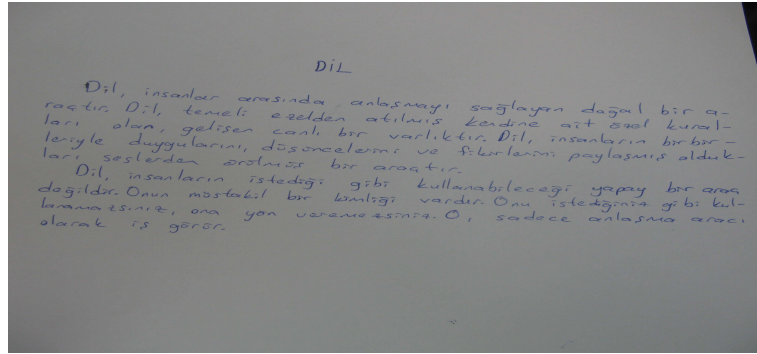 DİL
Dil, insanlar arasında anlaşmayı sağlayan doğal bir a-
raçtır. Dil, temeli ezelden atılmış kendine ait özel kural-
ları olan, gelişen canlı bir varlıktır. Dil, insanların birbir-
leriyle duygularını, düşüncelerini ve fikirlerini paylaşmış olduk-
ları seslerden örülmüş bir araçtır.
Dil, insanların istediği gibi kullanabileceği yapay bir araç
değildir. Onun müstakil bir kimliği vardır. Onu istediğiniz gibi kul-
lanamazsınız, ona yön veremezsiniz. O, sadece anlaşma aracı
olarak iş görür.